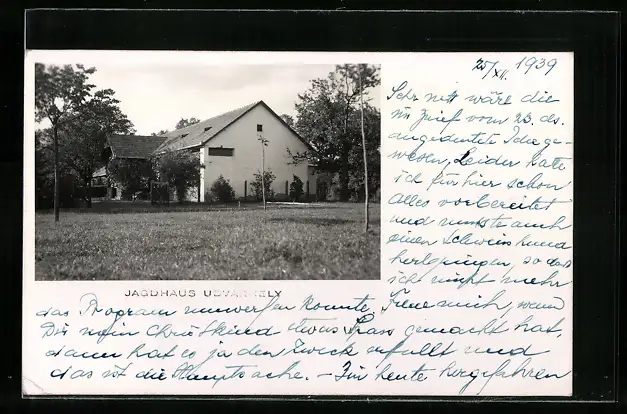 25/XII. 1939
Sehr nett wäre die
im Brief vom 23. ds.
angedeutete Idee ge-
wesen, Leider hatte
ich für hier schon
Alles vorbereitet
und musste auch
einen Schweisshund
herbringen, so dass
ich nicht mehr
JAGDHAUS UDVARHELY
das Program umwerfen konnte, Freue mich, wenn
Dir mein Christkind etwas Spass gemacht hat,
dann hat es ja den Zweck erfüllt und
das ist die Hauptsache. - Für heute